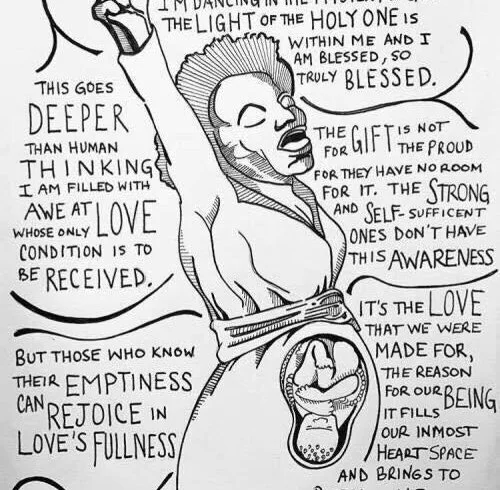 I'M DANCING IN THE
THE LIGHT OF THE HOLY ONE IS
WITHIN ME AND I
AM BLESSED, SO
TRULY BLESSED.
THIS GOES
DEEPER
THAN HUMAN
THINKING
I AM FILLED WITH
AWE AT LOVE
WHOSE ONLY
CONDITION IS TO
BE RECEIVED.
THE GIFT IS NOT
FOR THE PROUD
FOR THEY HAVE NO ROOM
FOR IT. THE STRONG
AND SELF-SUFFICENT
ONES DON'T HAVE
THIS AWARENESS
BUT THOSE WHO KNOW
THEIR EMPTINESS
CAN REJOICE IN
LOVE'S FULLNESS
IT'S THE LOVE
THAT WE WERE
MADE FOR,
THE REASON
FOR OUR BEING
IT FILLS
OUR INMOST
HEART SPACE
AND BRINGS TO